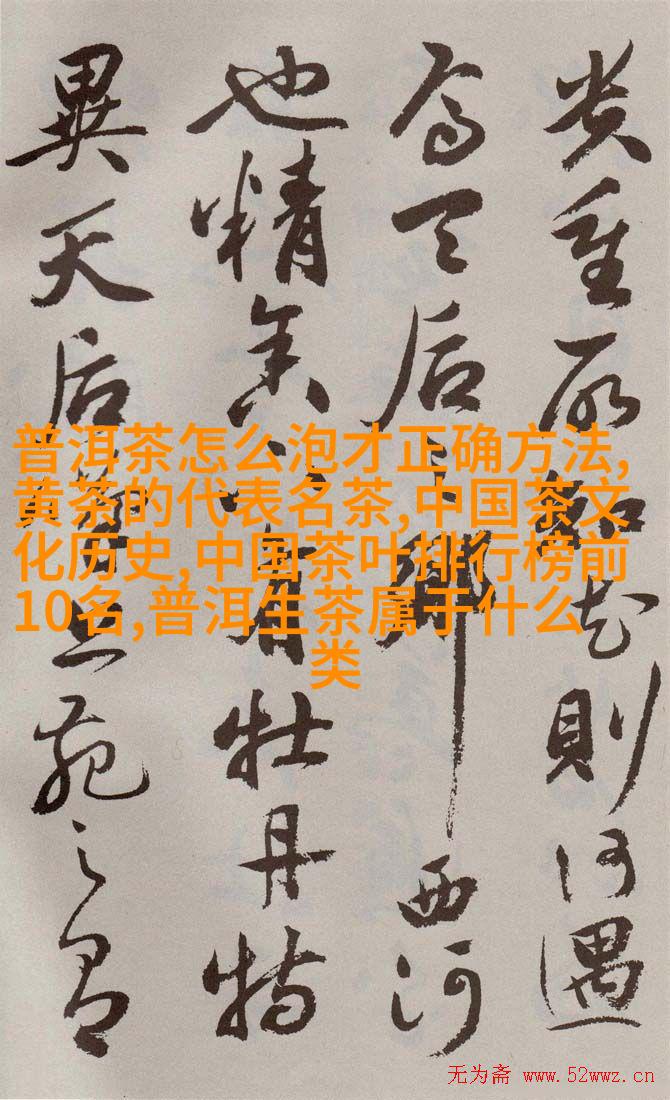 貴重所知花則何遇
焉天后之鄉西河
也精舍下有牡丹特
異天后上苑之有
普洱茶怎么泡才正确方法,
黄茶的代表名茶,中国茶文
化历史,中国茶叶排行榜前
10名,普洱生茶属于什么
类
无为斋 www.52wwz.cn